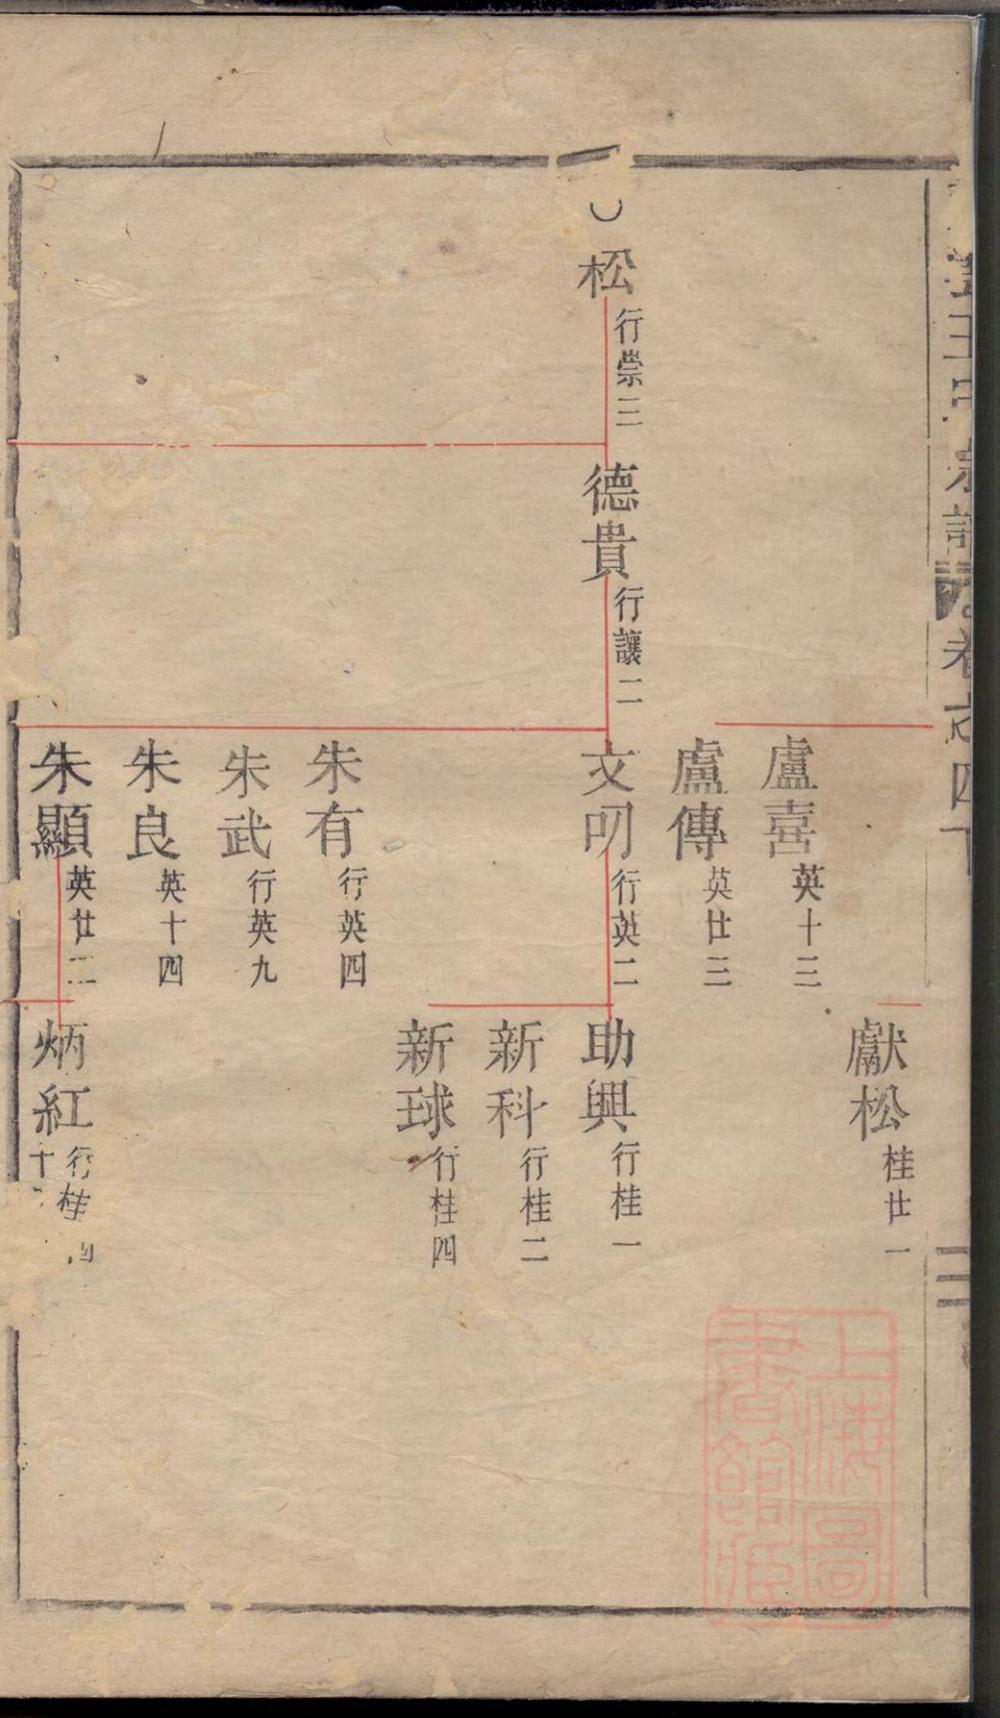 宗譜
卷
四下
二
獻松 桂廿一
盧喜 英十三
盧傳 英廿三
松 行崇三
德貴 行讓二
文明 行英二
助興 行桂一
新科 行桂二
新球 行桂四
朱有 行英四
朱武 行英九
朱良 英十四
朱顯 英廿二
炳紅 行桂
十
上海圖
書館藏